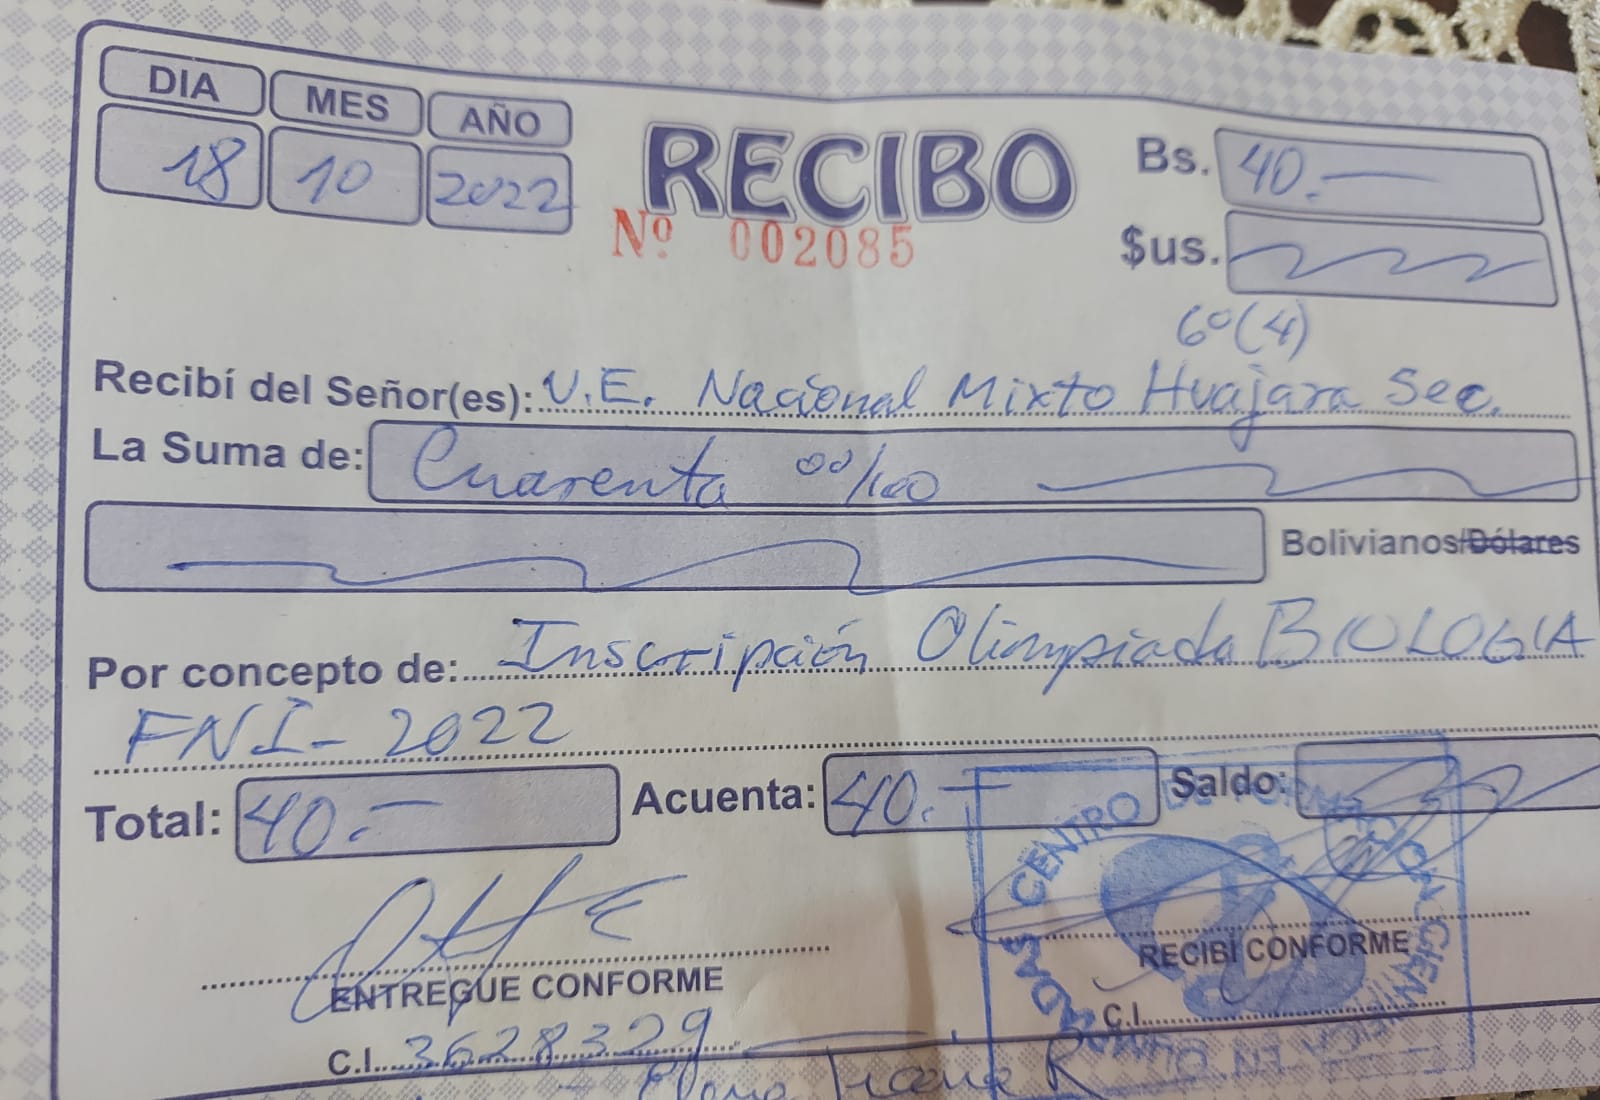 DIA MES AÑO
18 10 2022
RECIBO
Nº 002085
Bs. 40.-
$us.
6º (4)
Recibí del Señor(es): U.E. Nacional Mixto Huajara Sec.
La Suma de: Cuarenta 00/100
Bolivianos/Dólares
Por concepto de: Inscripción Olimpiada BIOLOGIA
FNI - 2022
Total: 40.- Acuenta: 40.- Saldo:
CENTRO DE FORMACION CIENTIFICA
ENTREGUE CONFORME
RECIBÍ CONFORME
C.I. 3628329
C.I.